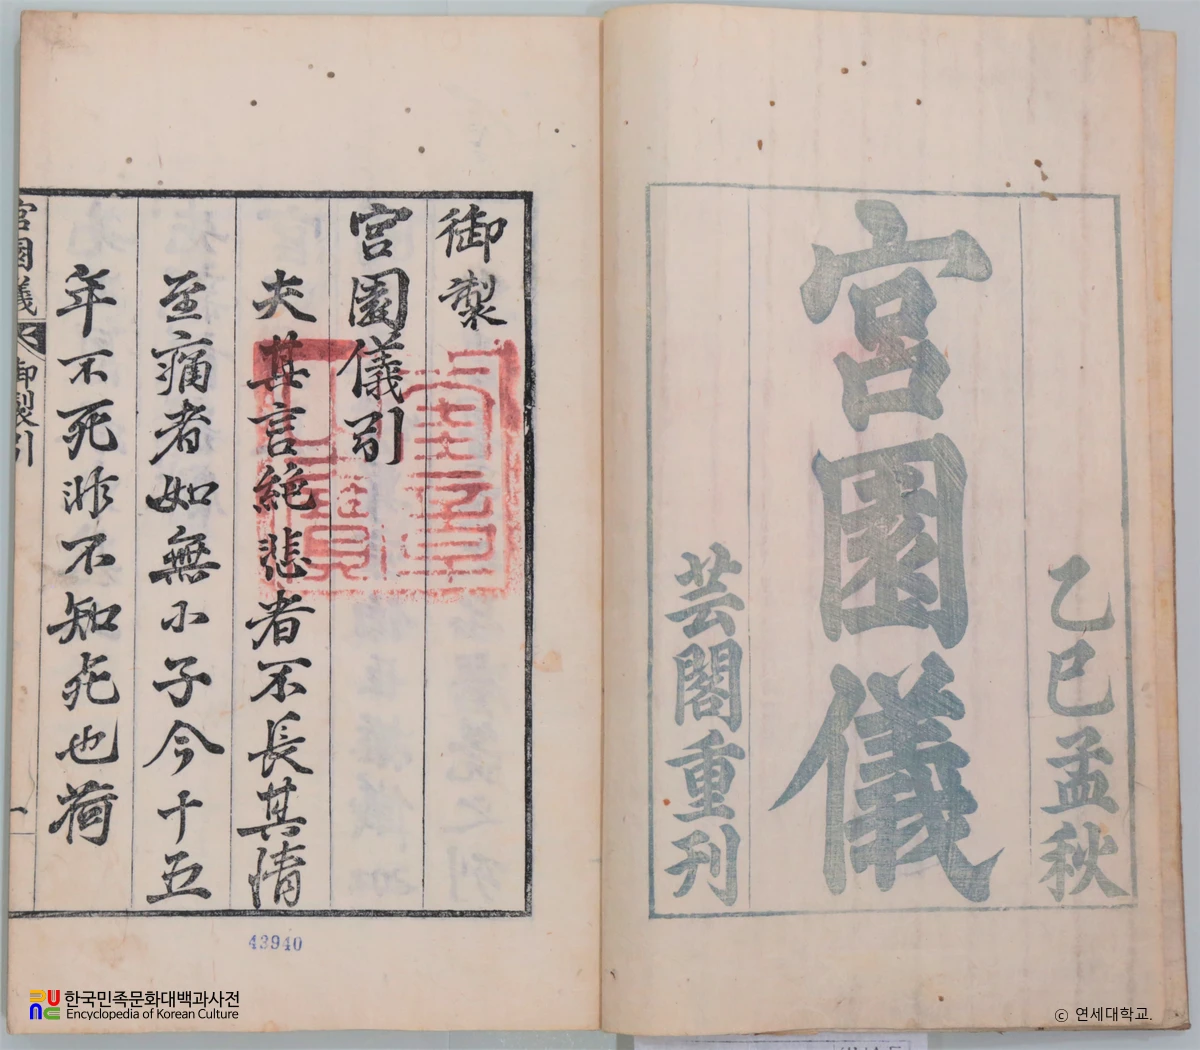 乙巳孟秋
宮園儀
芸閣重刊
御製
宮園儀引
夫其言絶悲者不長其情
至痛者如無小子今十五
年不死非不知死也荷
宮園儀
御製引
一
43940
한국민족문화대백과사전
Encyclopedia of Korean Culture
ⓒ 연세대학교.